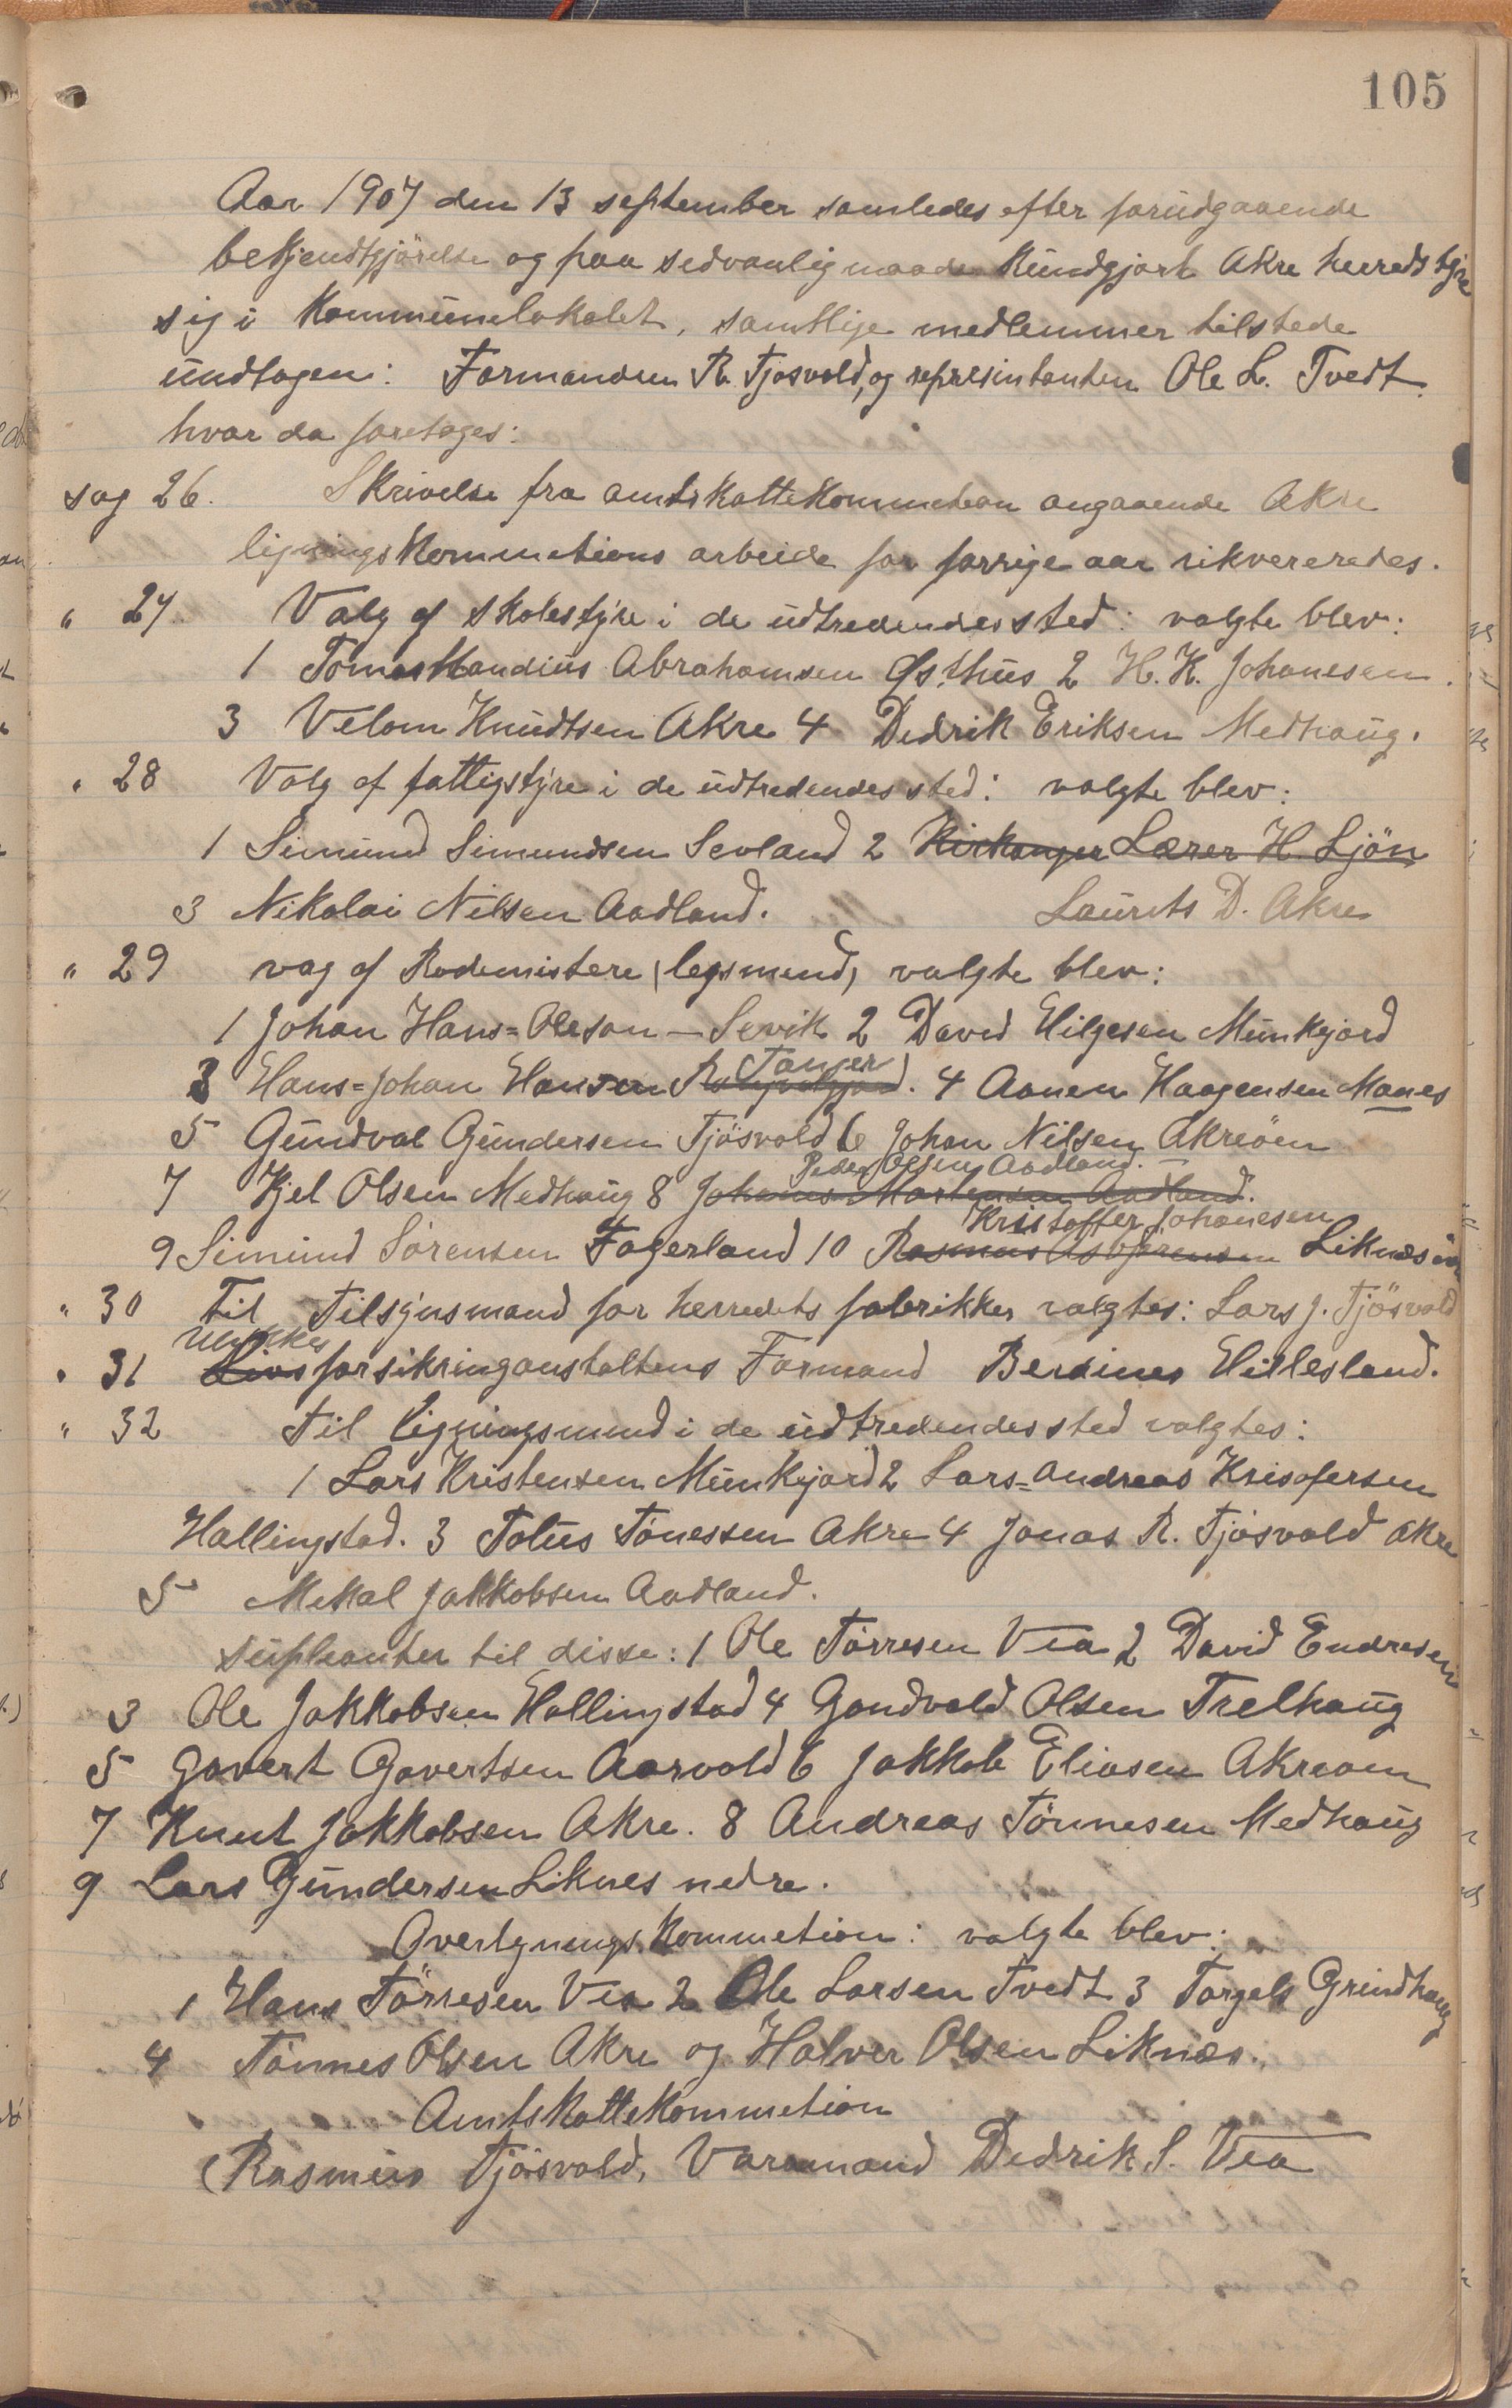 105
Aar 1907 den 13 september samledes efter forudgaaende
bekjendtgjörelse og paa sedvanlig maade Kundgjort Akre herredstyre
sig i Kommunelokalet, samtlige medlemmer tilstede
undtagen: Formanden R. Tjösvold, og representanten Ole L. Tvedt.
hvor da foretoges:
sag 26. Skrivelse fra amtskattekommetion angaaende Akre
ligningskommetions arbeide for forrige aar rikvereredes.
" 27. Valg af skolestyre i de udtredendes sted: valgte blev:
1 Tomas Mandius Abrahamsen Østhus 2 H. K. Johanesen.
3 Velom Knudtsen Akre 4 Dedrik Eriksen Medhaug.
" 28 Valg af fattigstyre i de udtredendes sted: valgte blev:
1 Simund Simundsen Sevland 2 Kirkanger Lærer H. Ljön
3 Nikolai Nilsen Aadland. Laurits D. Akre
" 29 vag af Rodemistere (legsmend) valgte blev:
1 Johan Hans=Oleson - Sevik 2 David Eilgesen Munkejord
Tanger
3 Hans=Johan Hansen. 4 Aanen Haagensen Manes
5 Gundval Gundersen Tjösvold 6 Johan Nilsen Akreöen
Peder Olsen Aadland.
7 Kjel Olsen Medhaug 8 Johanes Martensen Aadland.
Kristoffer Johanesen
9 Simund Sörensen Fagerland 10 Rasmus Asbjörensen Liknes
" 30 Til Tilsynsmand for herredets fabrikker valgtes: Lars J. Tjösvold
Ulykkes
" 31 Livsforsikringanstaltens Formand Berdines Hillesland.
" 32 Til ligningsmend i de udtredendes sted valgtes:
1 Lars Kristensen Munkejord 2 Lars=Andreas Krisofersen
Hallingstad. 3 Tolus Tönessen Akre 4 Jonas R. Tjösvold Akre
5 Mekal Jakkobsen Aadland.
supleanter til disse: 1 Ole Törresen Vea 2 David Endresen
3 Ole Jakkobsen Hallingstad 4 Gondvald Olsen Trelhaug
5 Govert Govertsen Aarvold 6 Jakkob Eliasen Akreoen
7 Knut Jakkobsen Akre. 8 Andreas Tönnesen Medhaug
9 Lars Gundersen Liknes nedre.
Overlignings Kommetion: valgte blev:
1 Hans Törresen Vea 2 Ole Larsen Tvedt 3 Torgels Grindhaug
4 Tönnes Olsen Akre og Halver Olsen Liknæs.
Amtskattekommetion
Rasmus Tjösvold, Varamand Dedrik S. Vea